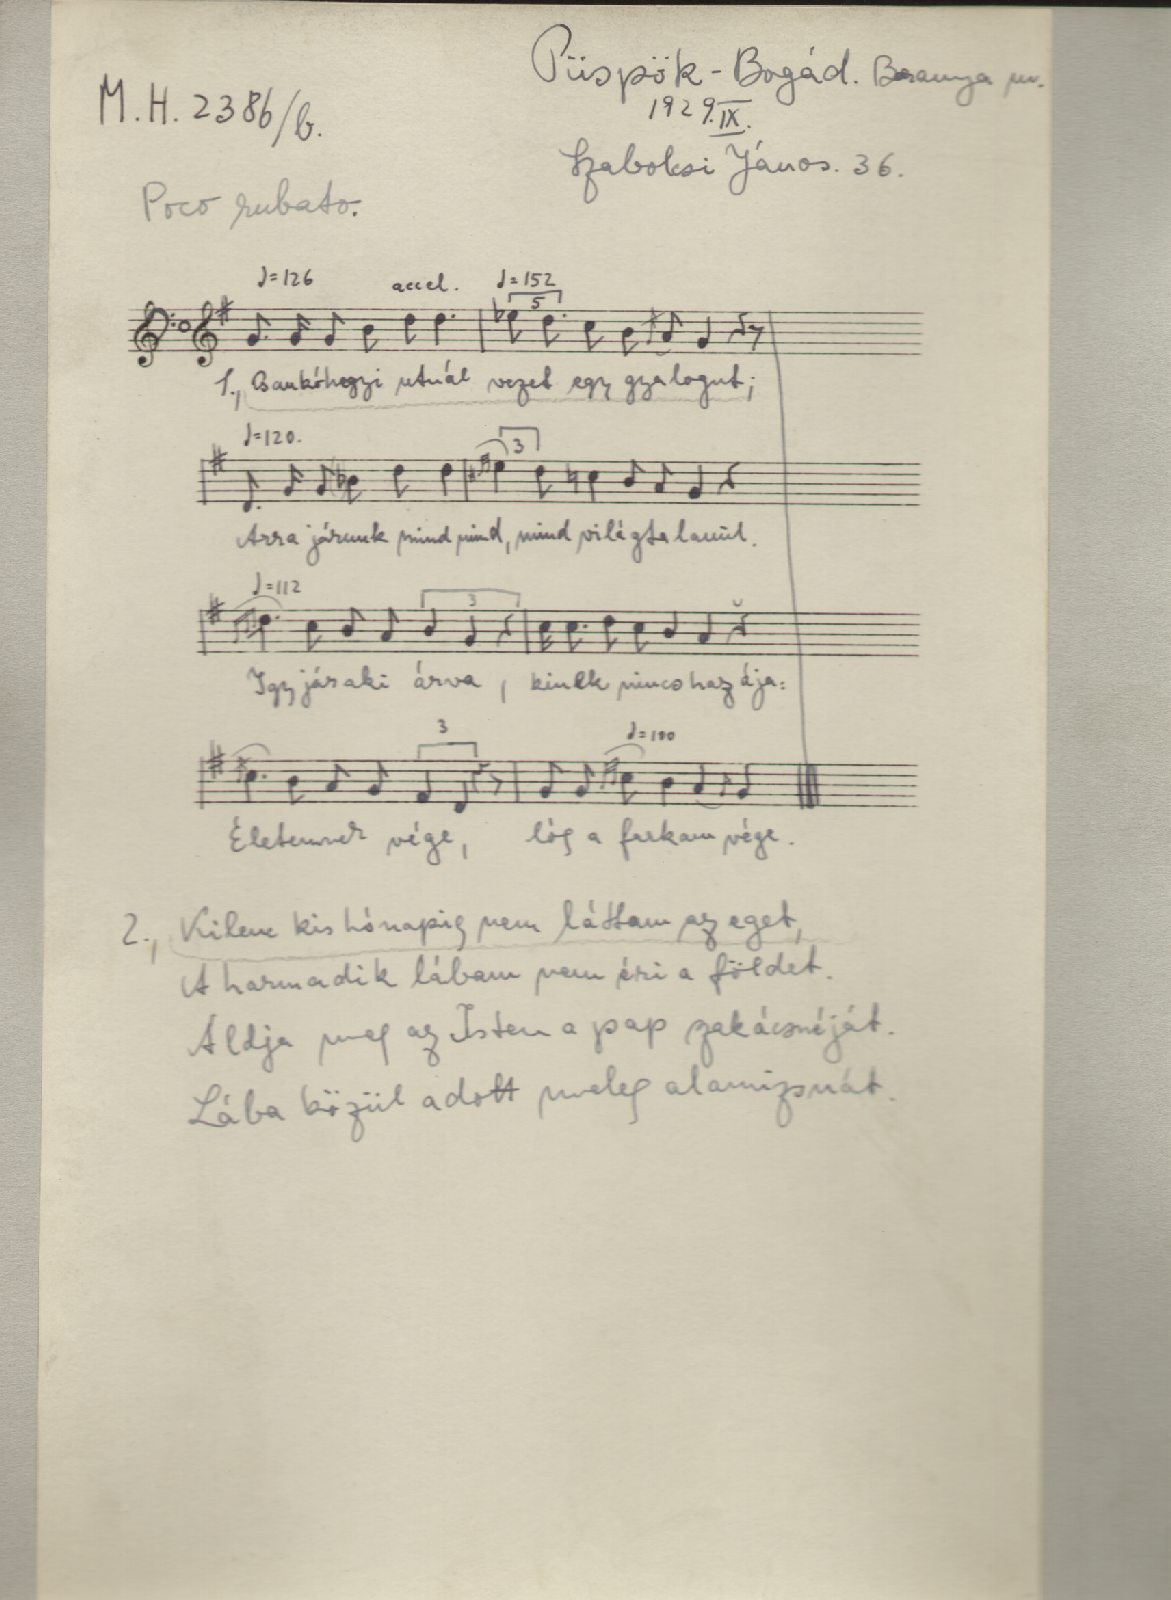 Püspök-Bogád. Baranya m.
M.H. 2386/b.
1929.IX.
Szabolcsi János. 36.
Poco rubato.
♩=126 accel. ♩=152
5
1., Bankóhegyi utnál vezet egy gyalogut;
♩=120.
3
Arra járunk mind mind, mind világtalanúl.
♩=112
3
Igy jár aki árva, kinek nincs hazája:
3
♩=100
Életemnek vége, lóg a farkam vége.
2., Kilenc kis hónapig nem láttam az eget,
A harmadik lábam nem éri a földet.
Áldja meg az Isten a pap szakácsnéját.
Lába közül adott meleg alamizsnát.